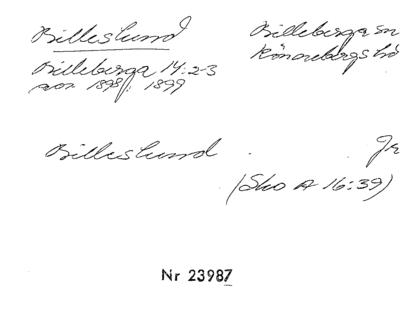 Billeslund
Billeberga sn
Billeberga 14:2-3
Rönnebergs hd
avs. 1898, 1899
Billeslund . Jr
(Sko A 16:39)
Nr 23987